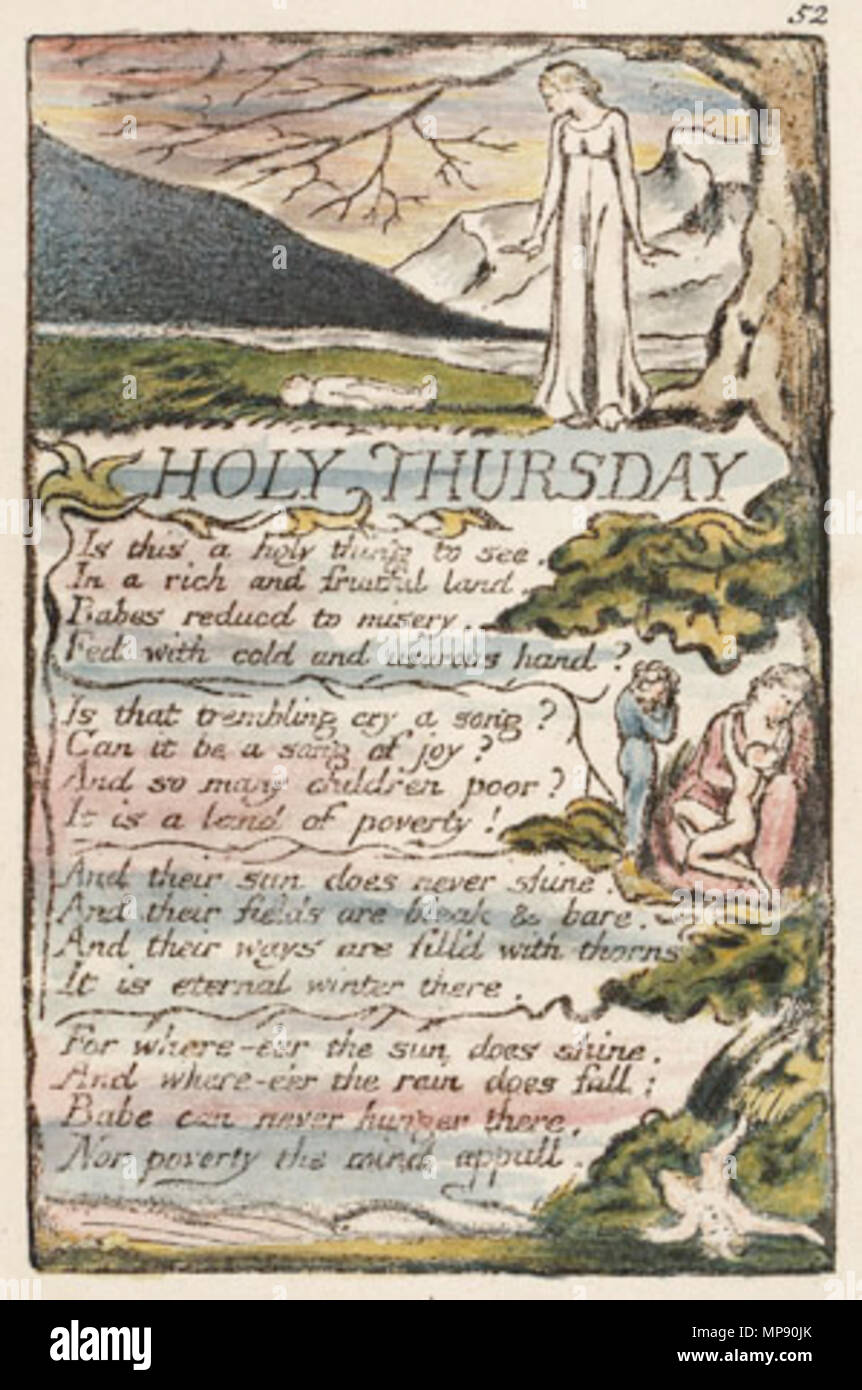 52
HOLY THURSDAY
Is this a holy thing to see.
In a rich and fruitful land.
Babes reducd to misery.
Fed with cold and usurous hand?
Is that trembling cry a song?
Can it be a song of joy?
And so many children poor?
It is a land of poverty!
And their sun does never shine.
And their fields are bleak & bare.
And their ways are fill'd with thorns
It is eternal winter there.
For where-e'er the sun does shine.
And where-e'er the rain does fall:
Babe can never hunger there,
Nor poverty the mind appall.
alamy
Image ID: MP90JK
www.alamy.com